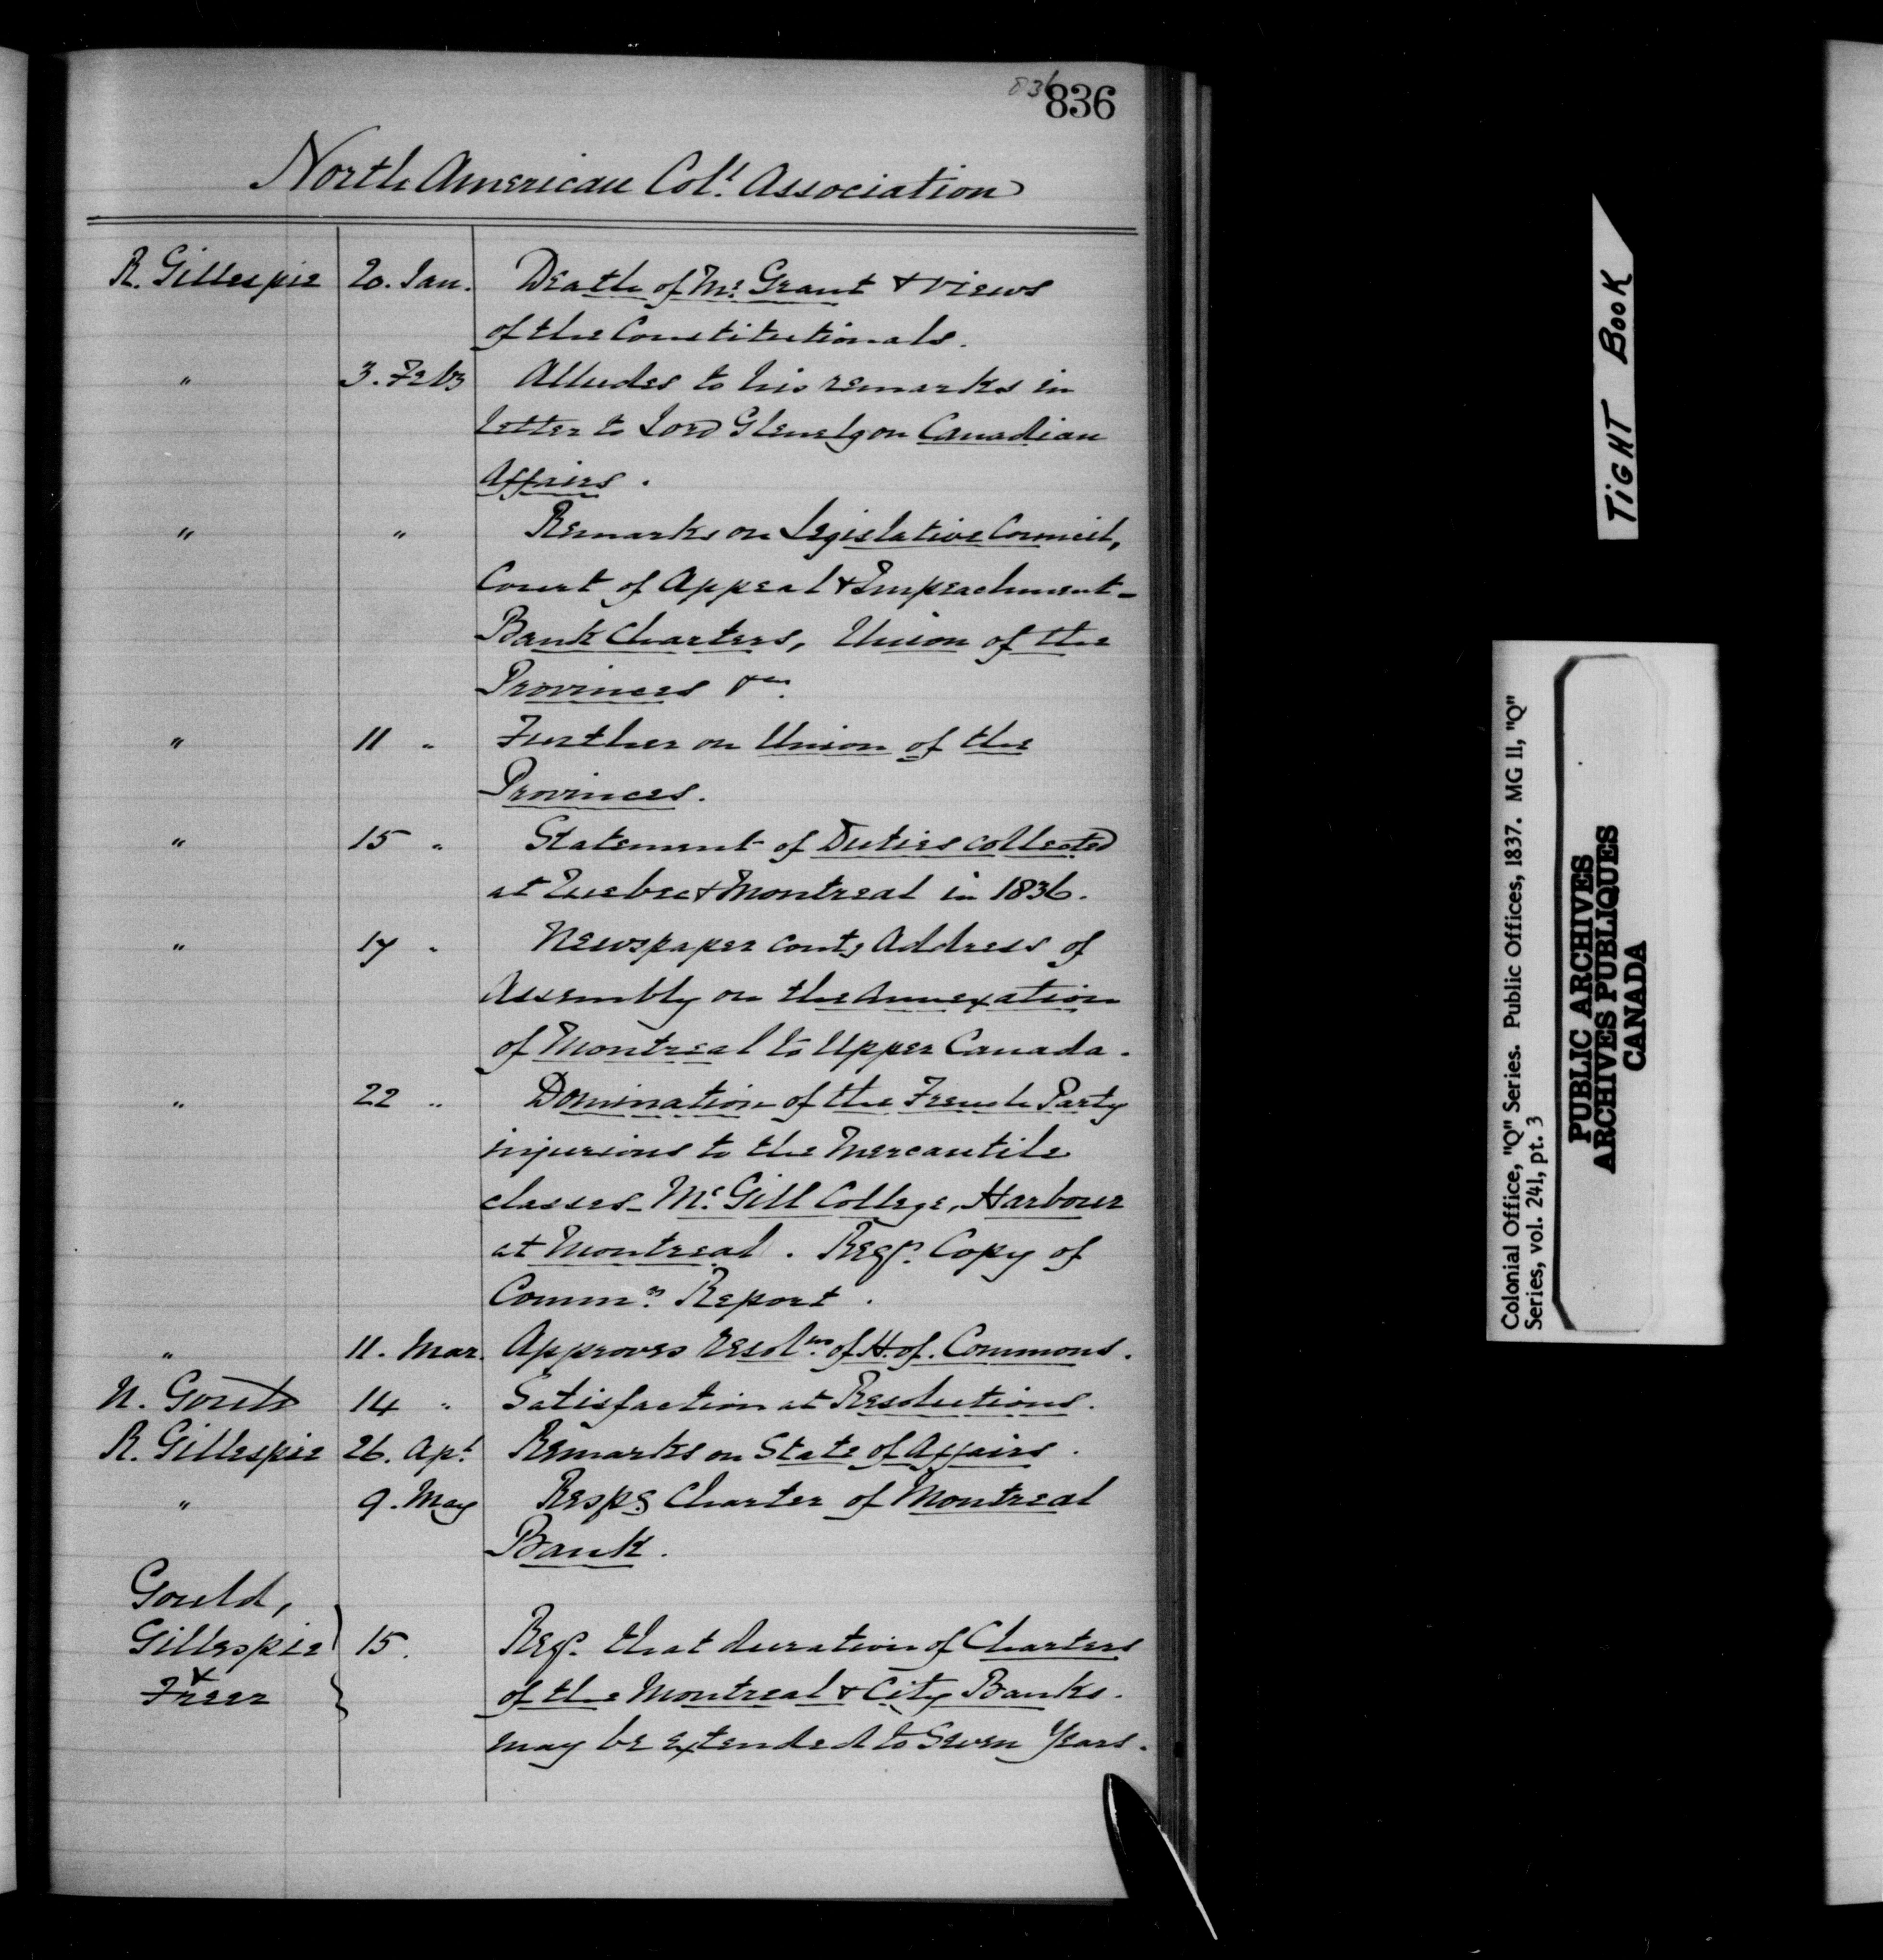 836
836
North American Col<sup>l</sup>. Association
R. Gillespie 20. Jan. Death of Mr. Grant & views
of the Constitutionals.
" 3. Feby Alludes to his remarks in
letter to Lord Glenelg on Canadian
Affairs.
" " Remarks on Legislative Council,
Court of Appeal & Impeachment -
Bank Charters, Union of the
Provinces &ca.
" 11 " Further on Union of the
Provinces.
" 15 " Statement of Duties collected
at Quebec & Montreal in 1836.
" 17 " Newspaper contg Address of
Assembly on the Annexation
of Montreal to Upper Canada.
" 22 " Domination of the French Party
injurious to the Mercantile
classes - Mc.Gill College, Harbour
at Montreal. Reqs. Copy of
Commrs. Report.
" 11. Mar. Approves Resolns. of H. of. Commons.
N. Gould 14 " Satisfaction at Resolutions.
R. Gillespie 26. Apl. Remarks on State of Affairs.
" 9. May Respg Charter of Montreal
Bank.
Gould,
Gillespie } 15. Reqs. that duration of Charters
& Freer } of the Montreal & City Banks.
may be extended to Seven Years.
TIGHT BOOK
Colonial Office, "Q" Series. Public Offices, 1837. MG 11, "Q"
Series, vol. 241, pt. 3
PUBLIC ARCHIVES
ARCHIVES PUBLIQUES
CANADA